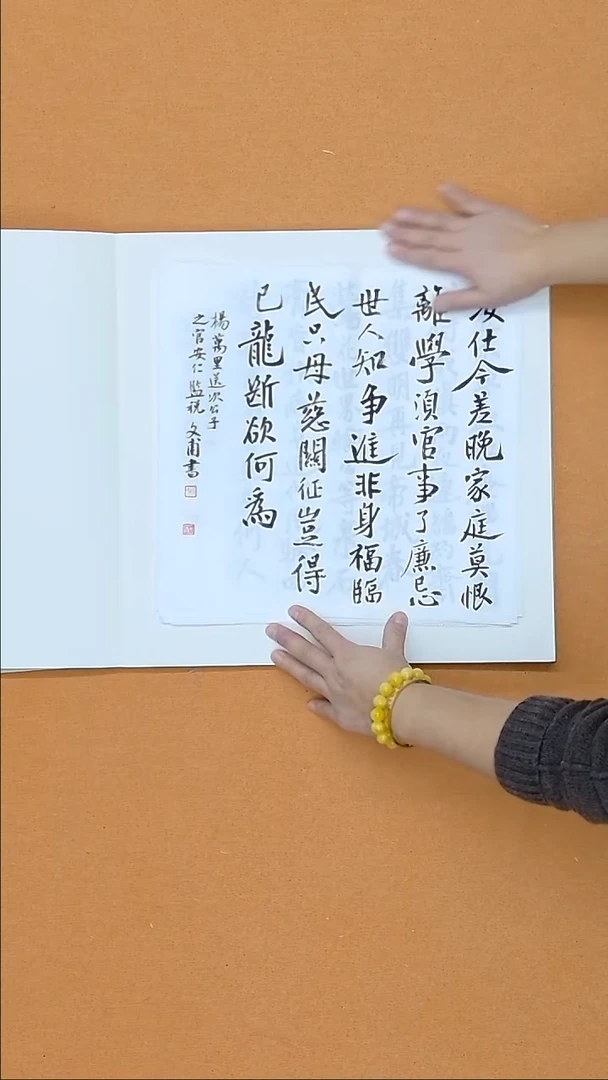 仕今差晚家庭莫恨
離學湏官事了廉忌
世人知爭進非身福臨
民只母慈關征豈得
已龍斷欲何為
楊萬里送次公子
之官安仁監税 文甫書